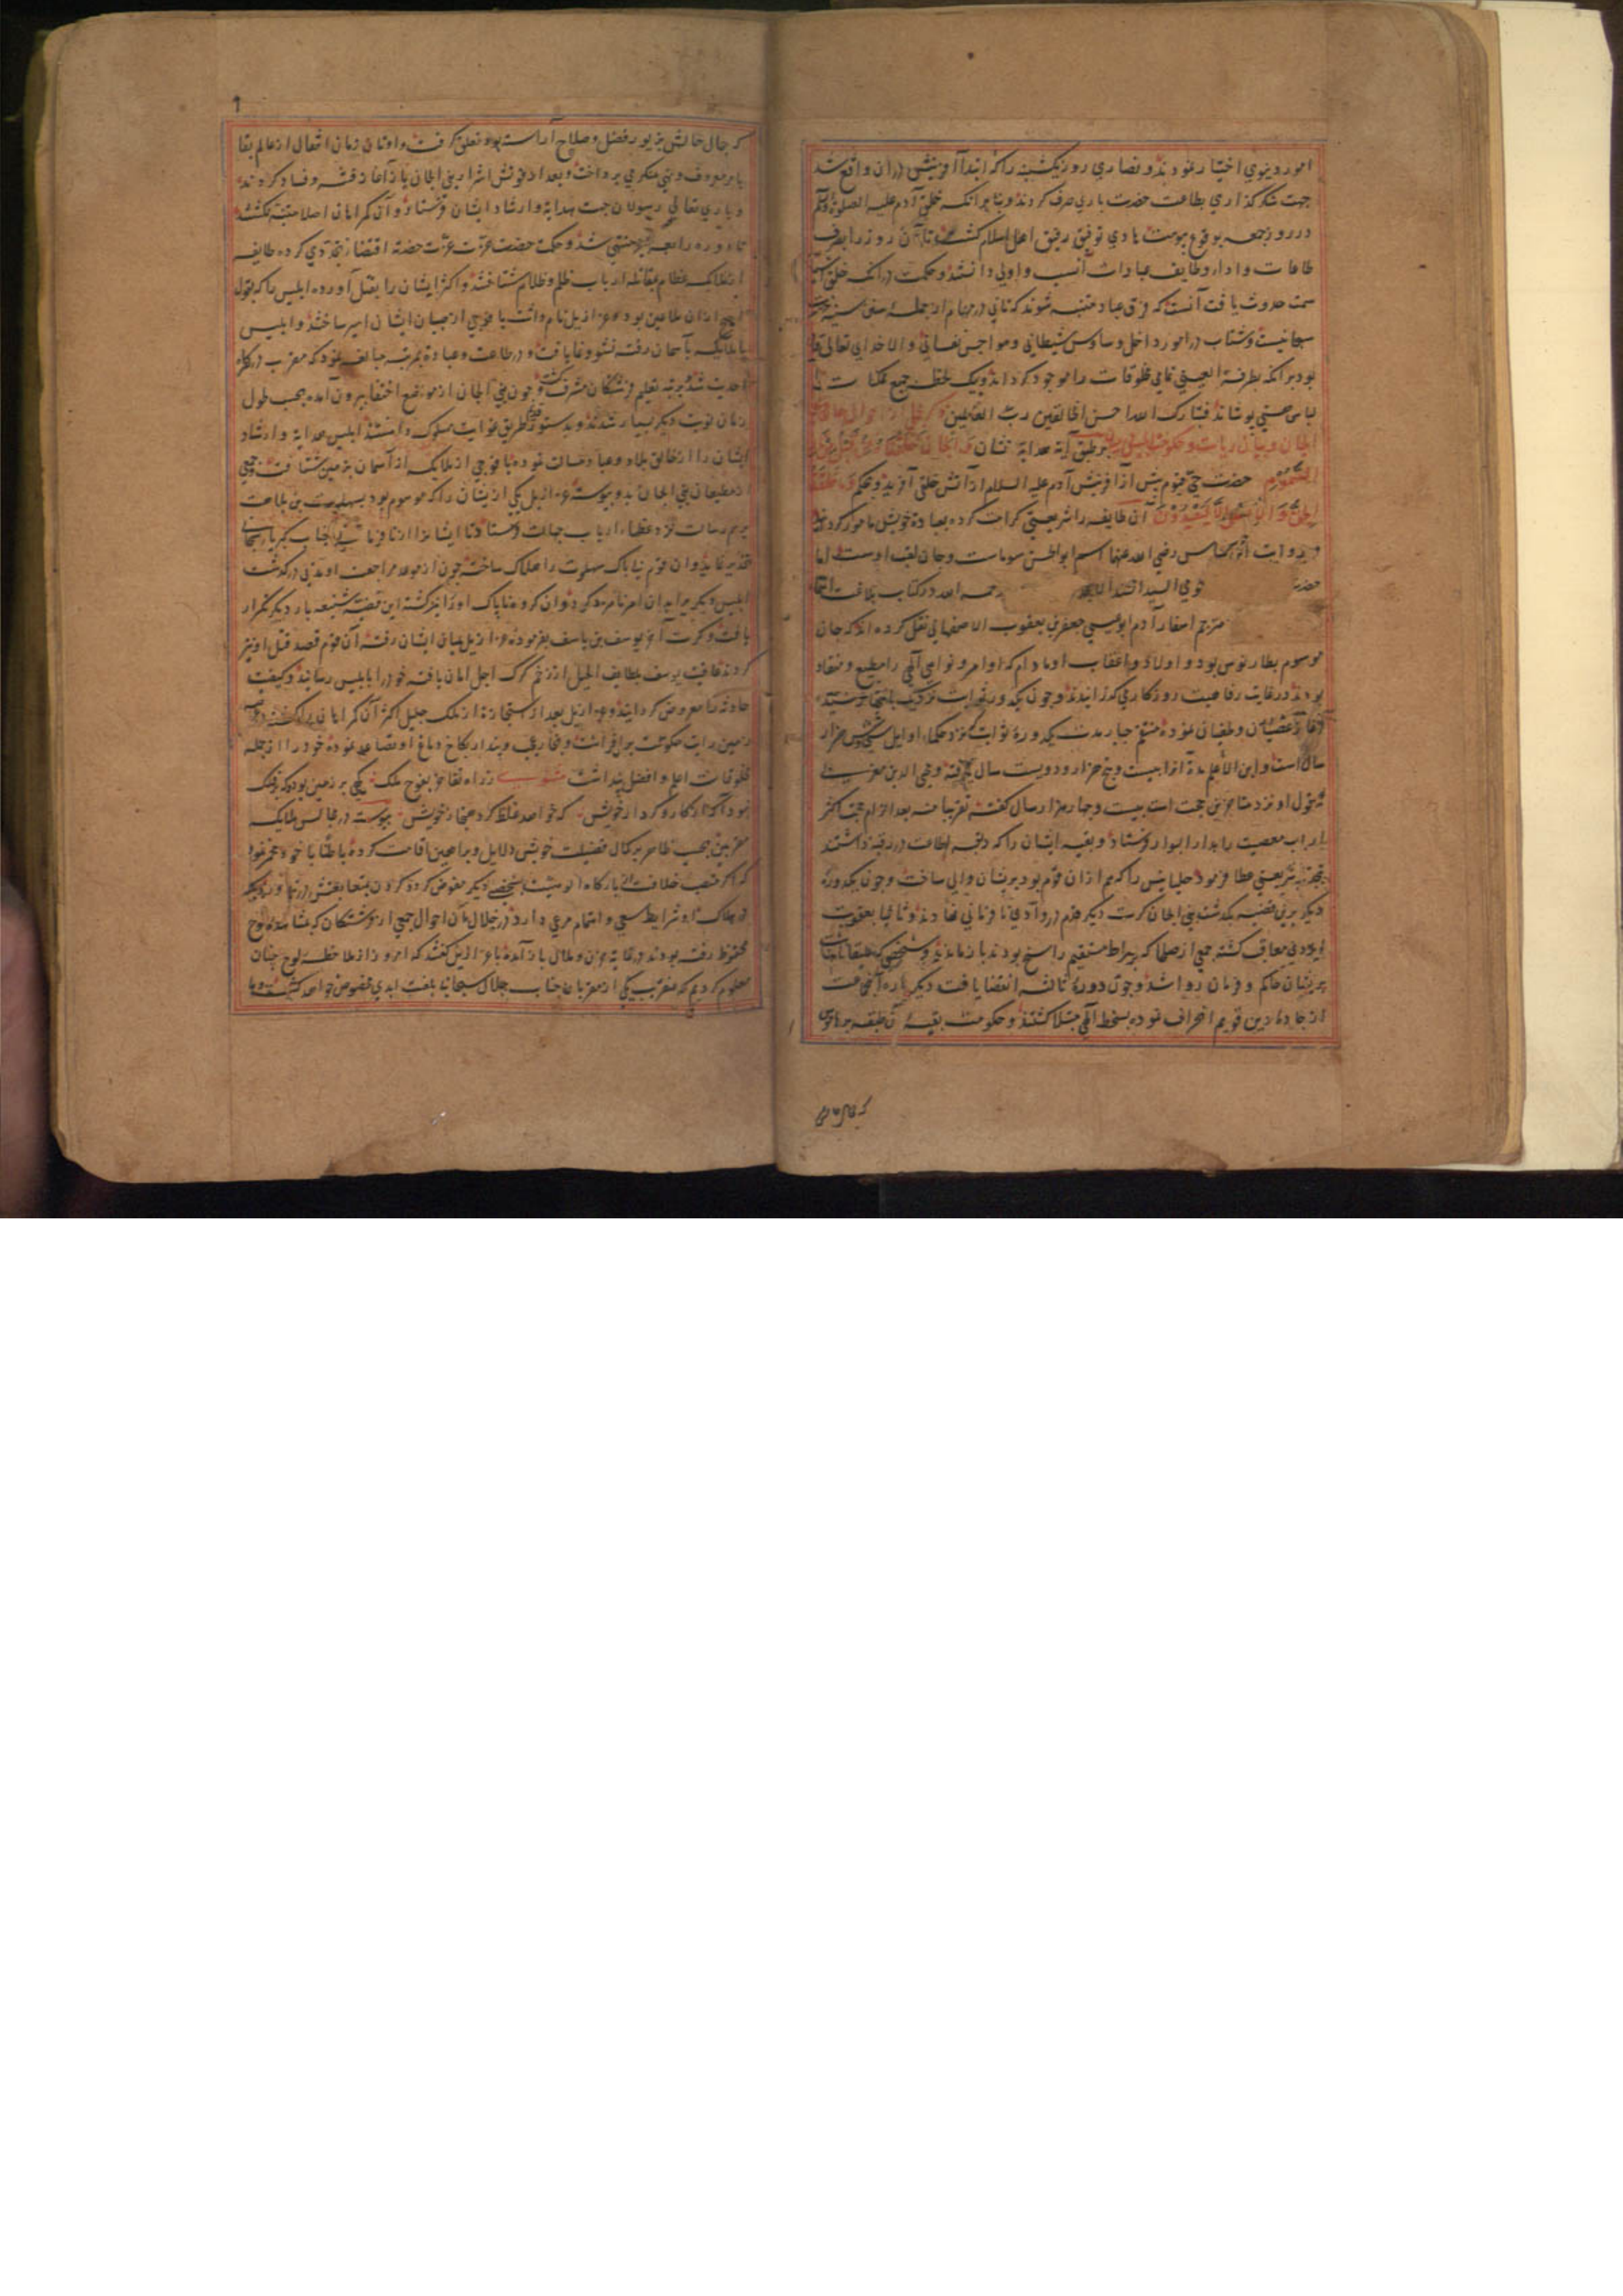 امور دنیوی اختیار نمودند و نصاری روز یکشنبه را که ابتدا آفرینش دران واقع شد
جهت شکر گذاری بطاعت حضرت باری صرف کردند و بنابر آنکه خلق آدم علیه الصلوة والسلم
در روز جمعه بوقوع پیوست هادی توفیق رفیق اهل اسلام گشت تا آن روز را بصرف
طاعات و ادا وظایف عبادات انسب و اولی دانستند و حکمت در آنکه خلق اشیا
سمت حدوث یافت آنست که فرق عباد متنبه شوند که تانی در مهام از جمله سنن سنیه
سبحانیست و شتاب در امور داخل وساوس شیطانی و هواجس نفسانی و الا خدای تعالی قادر
بود بر آنکه بطرفة العینی تمامی مخلوقات را موجود گرداند و بیک لحظه جمیع ممکنات را
لباس هستی پوشاند فتبارک الله احسن الخالقین رب العالمین ذکر احوال
الجان و بیان ریاست و حکومت ابلیس بر طبق آیه هدایة نشان وَالجَانَّ خَلَقْنَاهُ مِنْ قَبْلُ مِنْ نَارِ
السَّمُوْمِ حضرت حی قیوم پیش از آفرینش آدم علیه السلام از آتش خلقی آفرید و بحکم وَمَا خَلَقْتُ
الْجِنَّ وَالْاِنْسَ اِلَّا لِیَعْبُدُوْنَ آن طایفه را شریعتی کرامت کرده بعبادة خویش مامور گردانید
و بروایت ابن عباس رضی الله عنهما اسم ابو الجن سوماست و جان لقب اوست اما
حضرت رحمه الله در کتاب بلاغت انتما
مترجم اسفار آدم ابو عیسی جعفر بن یعقوب الاصفهانی نقل کرده اند که جان
موسوم بطارنوس بود و اولاد و اعقاب او مادام که اوامر و نواهی الهی را مطیع و منقاد
بودند در غایت رفاهیت روزگاری گذرانیدند و چون یکدوره ثوابت نزدیک بانتها رسید
آغاز عصیان و طغیان نموده منتقم جبار مدت یکدوره ثوابت نزد حکما اوایل سی و شش هزار
سال است و ابن الاعلم مدة آنرا بیست و پنج هزار و دویست سال گرفته و محی الدین مغربی
بقول او نزد متاخرین حجت است بیست و چار هزار سال گفته تقریبا بعد الزام حجت اکثر
ارباب معصیت را بدار البوار فرستاد و بقیه ایشان را که ربقه اطاعت در رقبه داشتند
بتجدید شریعتی عطا فرمود حلیایس را که هم ازان قوم بود بریشان والی ساخت و چون یکدوره
دیگر برین قضیه بگذشت بنی الجان کرت دیگر قدم در وادی نافرمانی نهادند و ثانیا بعقوبت
ایزدی معاقب گشته جمعی از صلحا که بصراط مستقیم راسخ بودند باز ماندند و شخصی بلیقا نام
بریشان حاکم و فرمان روا شد و چون دوره ثالثه انقضا یافت دیگر باره آن جماعت
از جاده دین قویم انحراف نموده بسخط الهی مبتلا گشتند و حکومت بقیه آن طبقه بر هاموس
که جمال حالش بزیور فضل و صلاح آراسته بود تعلق گرفت و او تا زمان انتقال از عالم بقا
بامر معروف و نهی منکر می پرداخت و بعد از فوتش اشرار بنی الجان باز آغاز فتنه و فساد کردند
و باری تعالی رسولان جهت هدایة و ارشاد ایشان فرستاد و آن گمراهان اصلا متنبه نگشتند
تا دوره رابعه نیز منتهی شد و حکمت حضرت عزت عزت حضرته اقتضا تجددی کرده طایفه
از ملائک عظام بمقاتله ارباب ظلم و ظلام شتافتند و اکثر ایشان را بقتل آورده ابلیس را که بقول
اصح ازان طاعین بود و عزازیل نام داشت با فوجی از صبیان ایشان اسیر ساختند و ابلیس
با ملایکه بآسمان رفته نشو و نما یافت و در طاعت و عبادة بمرتبه مبالغه نمود که مقرب درگاه
احدیت شد بمرتبه تعلیم فرشتگان مشرف گشت و چون بنی الجان از مواضع اختفا بیرون آمده بحسب طول
زمان نوبت دیگر بسیار شدند و بدستور قدیم طریق غوایت مسلوک داشتند ابلیس هدایة و ارشاد
ایشان را از خالق بلاد و عباد مسالت نموده با فوجی از ملایکه از آسمان بزمین شتافت و جمعی
از مطیعان بنی الجان بدو پیوسته عزازیل یکی ازیشان را که موسوم بود بسهلوت بن بلاهت
برسم رسالت نزد عظماء ارباب جهالت فرستاد تا ایشانرا از نافرمانی جناب کبریا سبحانی
تحذیر نماید و آن قوم بی باک سهلوت را هلاک ساخته چون از موعد مراجعت او مدتی در گذشت
ابلیس دیگری را بدان امر نامزد کرد و آن گروه ناپاک او را نیز کشته این قضیه شنیعه بار دیگر تکرار
یافت و کرت آخر یوسف بن یاسف بفرموده عزازیل میان ایشان رفته آن قوم قصد قتل او نیز
کردند عاقبت یوسف بلطایف الحیل از زخم گرگ اجل امان یافته خود را بابلیس رسانید و کیفیت
حادثه را معروض گردانید و عزازیل بعد از استجازة از ملک جلیل اکثر آن گمراهان را بکشت و در
زمین رایت حکومت برافراشت و بخار عجب و پندار بکاخ دماغ او تصاعد نموده خود را از جمله
مخلوقات اعلم و افضل پنداشت زد راه تفاخر بفوج ملک که چو بر زمین بود که بر فلک
نبود آگه از کار و کردار خویش که خواهد غلط کرد هنجار خویش پیوسته در مجالس ملایکه
مقربین بحسب ظاهر بر کمال فضیلت خویش دلایل و براهین اقامت کرده باطنا با خود مخمر نمود
که اگر منصب خلافت از بارگاه الوهیت بشخصی دیگر مفوض گردد گردن بمتابعتش در نیاورد بلکه
در هلاک او شرایط سعی و اهتمام مرعی دارد در خلال آن احوال جمعی از فرشتگان که بمشاهده لوح
محفوظ رفته بودند در غایة حزن و ملال باز آمده با عزازیل گفتند که امروز از ملاحظه لوح چنان
معلوم کردیم که عنقریب یکی از مقربان جناب جلال سبحانی بلعنت ابدی مخصوص خواهد گشت و ما